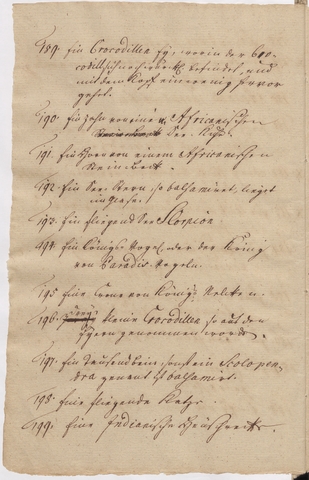 189. Ein Crocodillen Ey, worin der Cro-
codill sich noch befindet, und
mit dem Kopf ein wenig hervor
gehet.
190. Ein Zahn von einer Africanischen
See Kuhe.
191. Ein Horn von einem Africanischen
Steinbock.
192. Ein See Stern, so balsamiret, liegt
im Glase.
193. Ein fliegender See Skorpion.
194. Ein Königs Vogel, oder der König
von Paradis-Vogeln.
195. Eine von Königs Nelcken.
196. kleine Crocodillen, so aus den
Eyern genommen worden.
197. Ein Tausendbein, sonsten Scolopen-
dra genent, ist balsamirt.
198. Eine fliegende Katze.
199. Eine Indianische Heuschrecke.